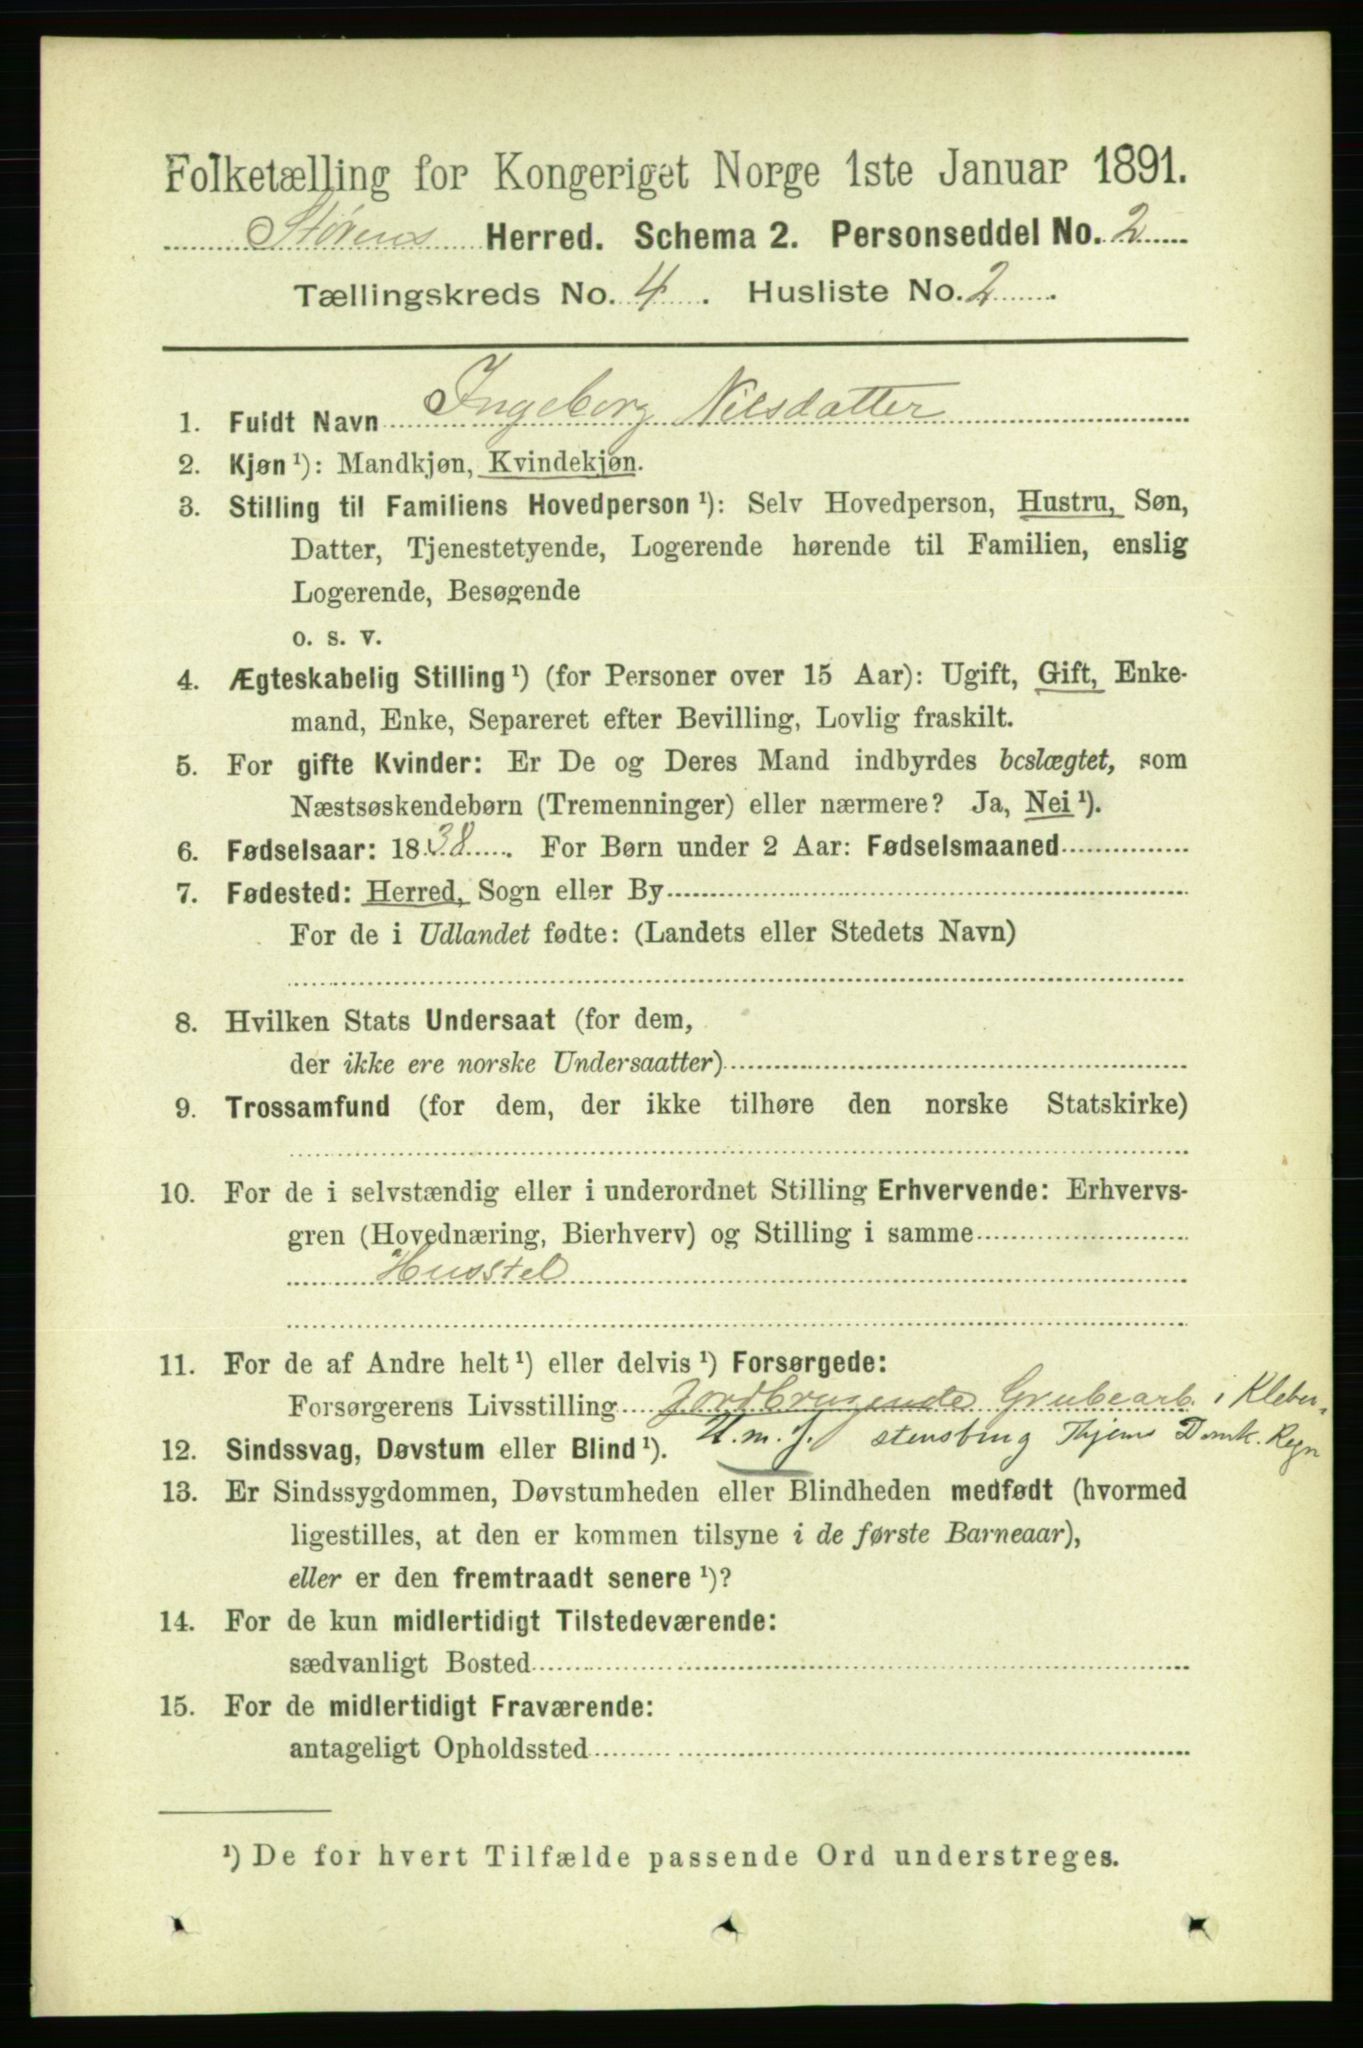 Folketælling for Kongeriget Norge 1ste Januar 1891.
Størens Herred. Schema 2. Personseddel No. 2
Tællingskreds No. 4. Husliste No. 2.
1. Fuldt Navn Ingeborg Nilsdatter
2. Kjøn ¹): Mandkjøn, Kvindekjøn.
3. Stilling til Familiens Hovedperson ¹): Selv Hovedperson, Hustru, Søn,
Datter, Tjenestetyende, Logerende hørende til Familien, enslig
Logerende, Besøgende
o. s. v.
4. Ægteskabelig Stilling ¹) (for Personer over 15 Aar): Ugift, Gift, Enke-
mand, Enke, Separeret efter Bevilling, Lovlig fraskilt.
5. For gifte Kvinder: Er De og Deres Mand indbyrdes beslægtet, som
Næstsøskendebørn (Tremenninger) eller nærmere? Ja, Nei ¹).
6. Fødselsaar: 1838. For Børn under 2 Aar: Fødselsmaaned
7. Fødested: Herred, Sogn eller By
For de i Udlandet fødte: (Landets eller Stedets Navn)
8. Hvilken Stats Undersaat (for dem,
der ikke ere norske Undersaatter)
9. Trossamfund (for dem, der ikke tilhøre den norske Statskirke)
10. For de i selvstændig eller i underordnet Stilling Erhvervende: Erhvervs-
gren (Hovednæring, Bierhverv) og Stilling i samme
Husstel
11. For de af Andre helt ¹) eller delvis ¹) Forsørgede:
Forsørgerens Livsstilling Jordbrugende Grubearb. i Kleber-
12. Sindssvag, Døvstum eller Blind ¹). U.m.J. stensbrug Domk. Regn
13. Er Sindssygdommen, Døvstumheden eller Blindheden medfødt (hvormed
ligestilles, at den er kommen tilsyne i de første Barneaar),
eller er den fremtraadt senere ¹)?
14. For de kun midlertidigt Tilstedeværende:
sædvanligt Bosted
15. For de midlertidigt Fraværende:
antageligt Opholdssted
¹) De for hvert Tilfælde passende Ord understreges.